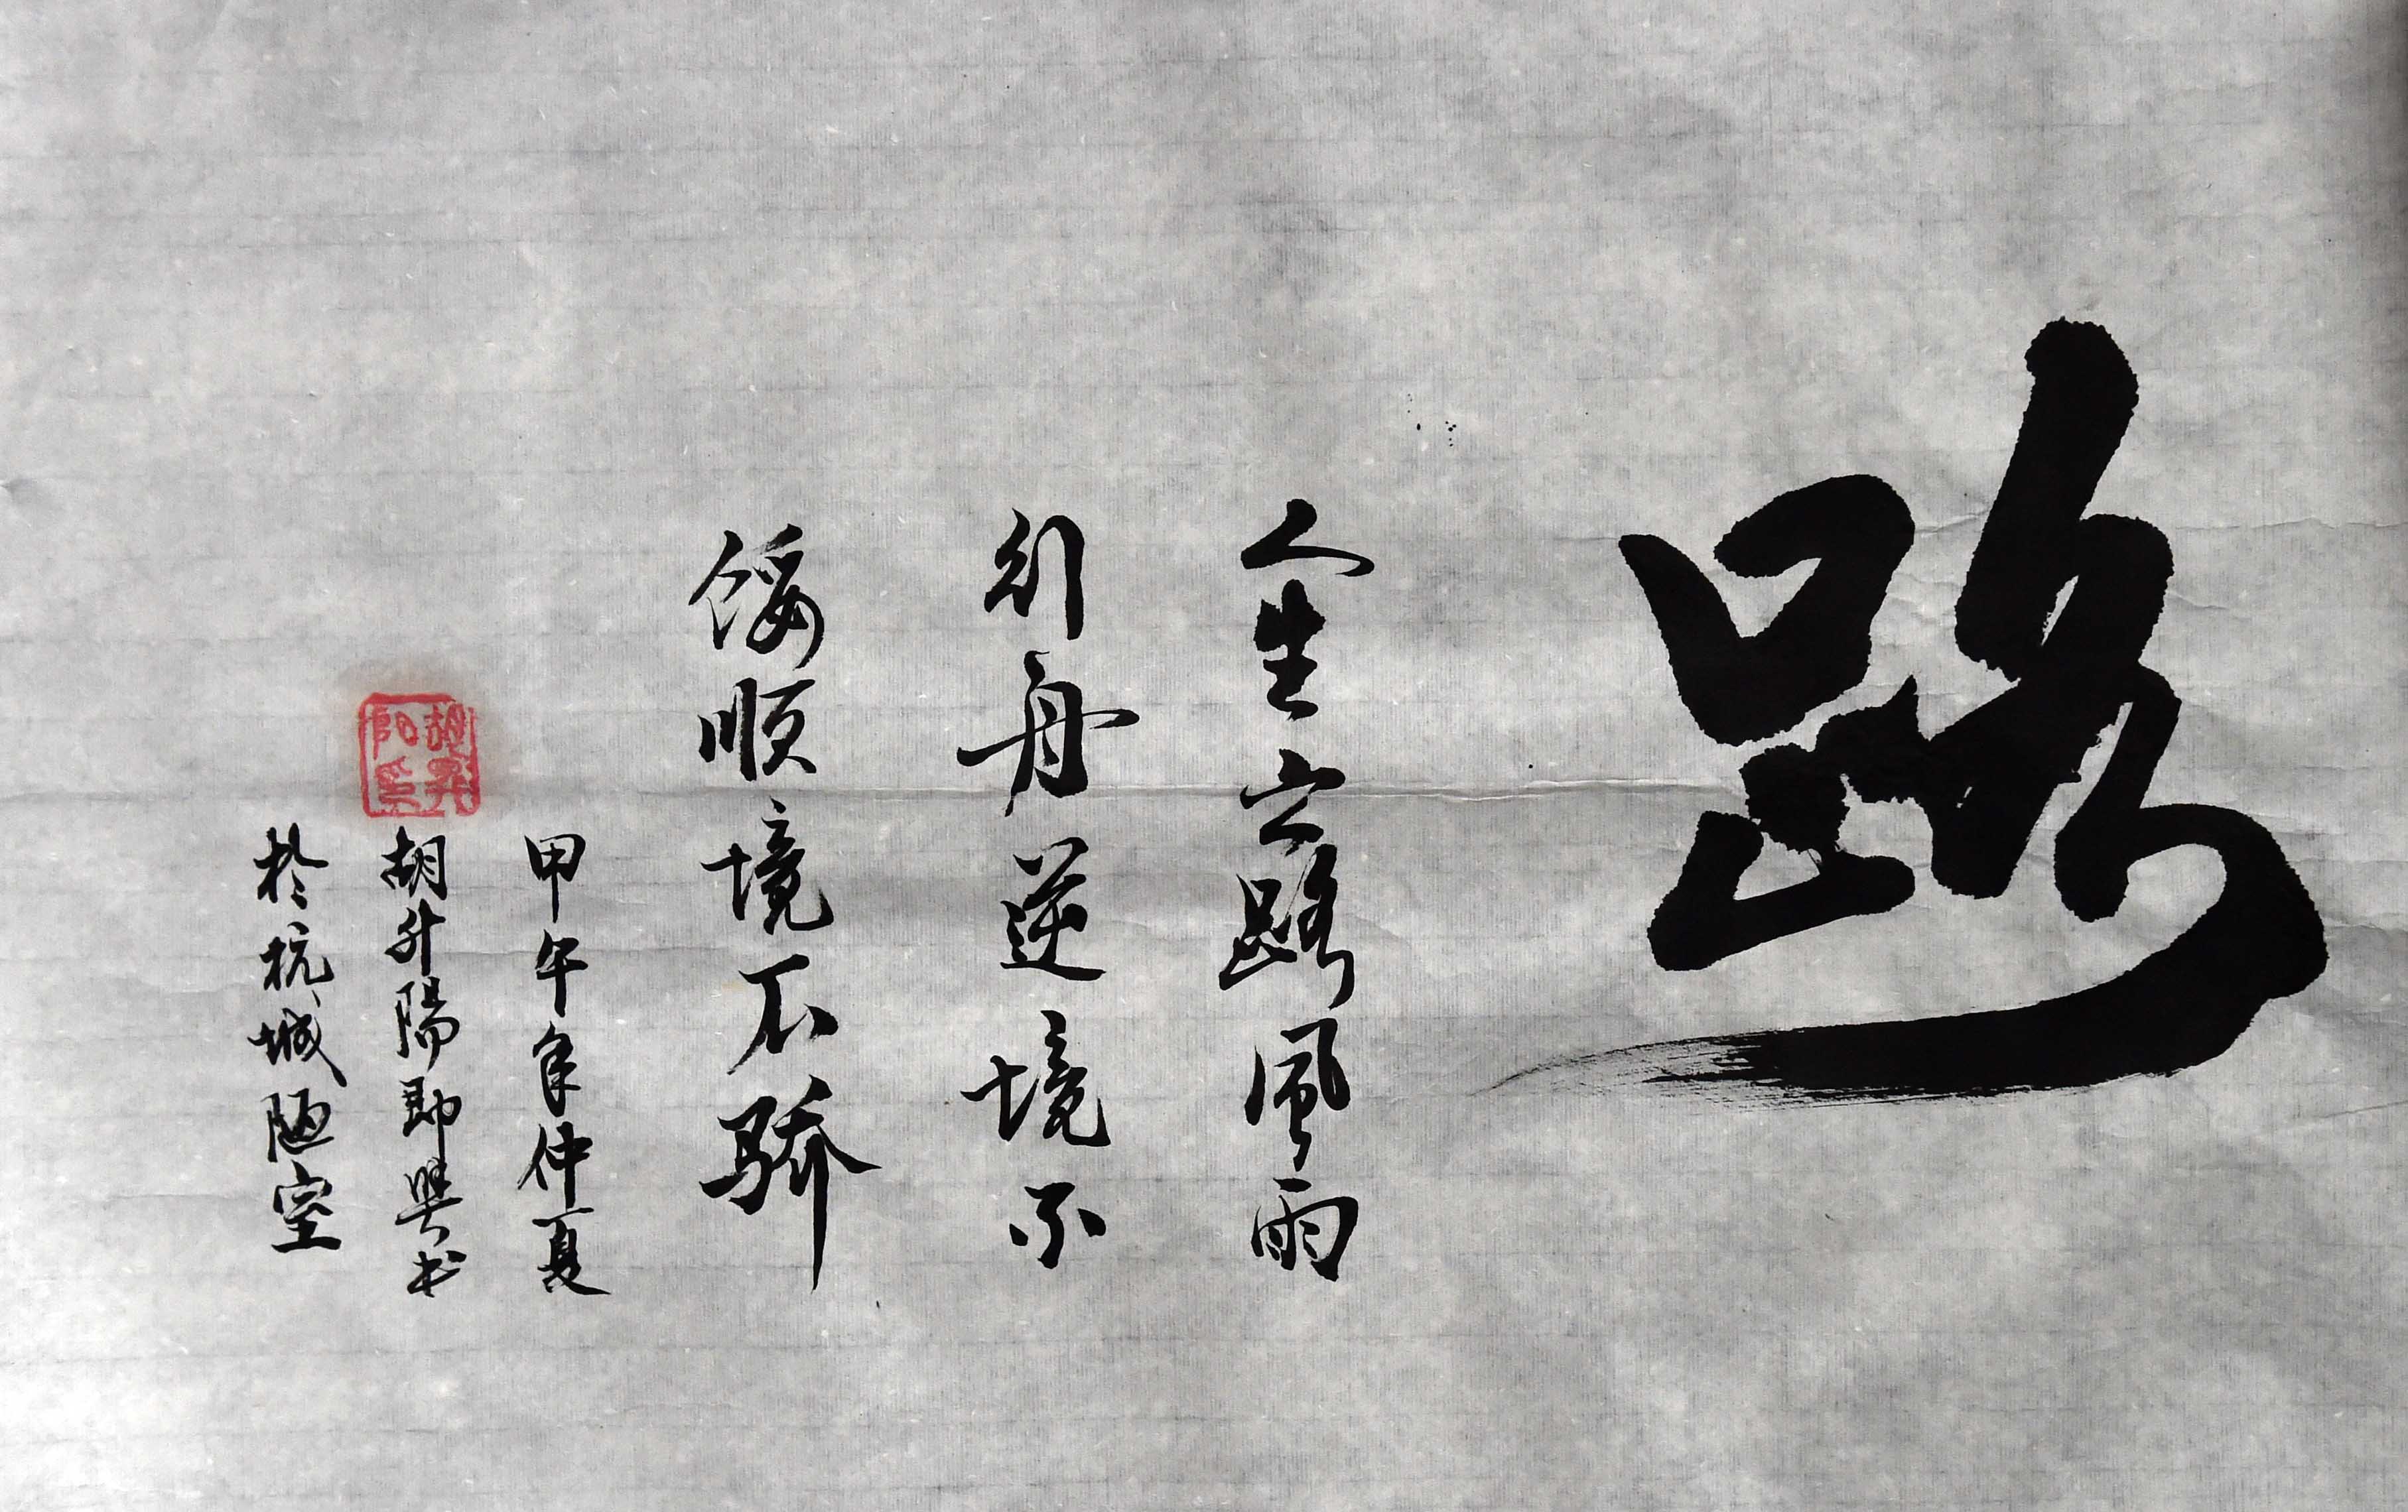 路
人生之路風雨
行舟逆境不
餒順境不驕
甲午年仲夏
胡升陽即興书
於杭城陋室
胡昇阳印